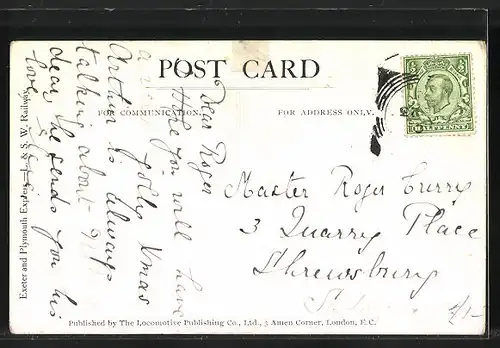 POST CARD
FOR COMMUNICATION
FOR ADDRESS ONLY.
Dear Roger
Hope you will have
a jolly Xmas
Arthur is always
talking about you
dear, he sends you his
love
Master Roger Curry
3 Quarry Place
Shrewsbury
1/-
HALFPENNY
Exeter and Plymouth Express—L. & S. W. Railway
Published by The Locomotive Publishing Co., Ltd., 3 Amen Corner, London, E.C.